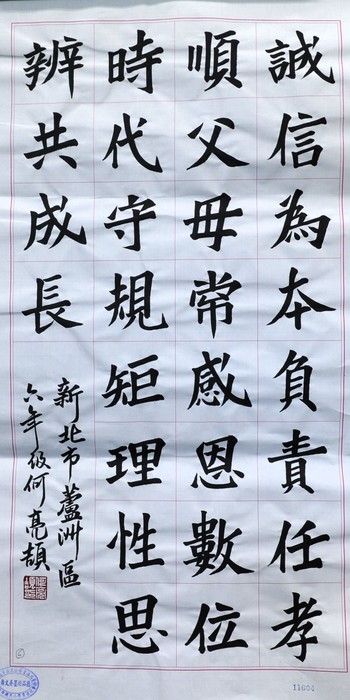 誠信為本負責任孝
順父毋常感恩數位
時代守規矩理性思
辨共成長
新北市蘆洲區
六年級何亮頡
11624